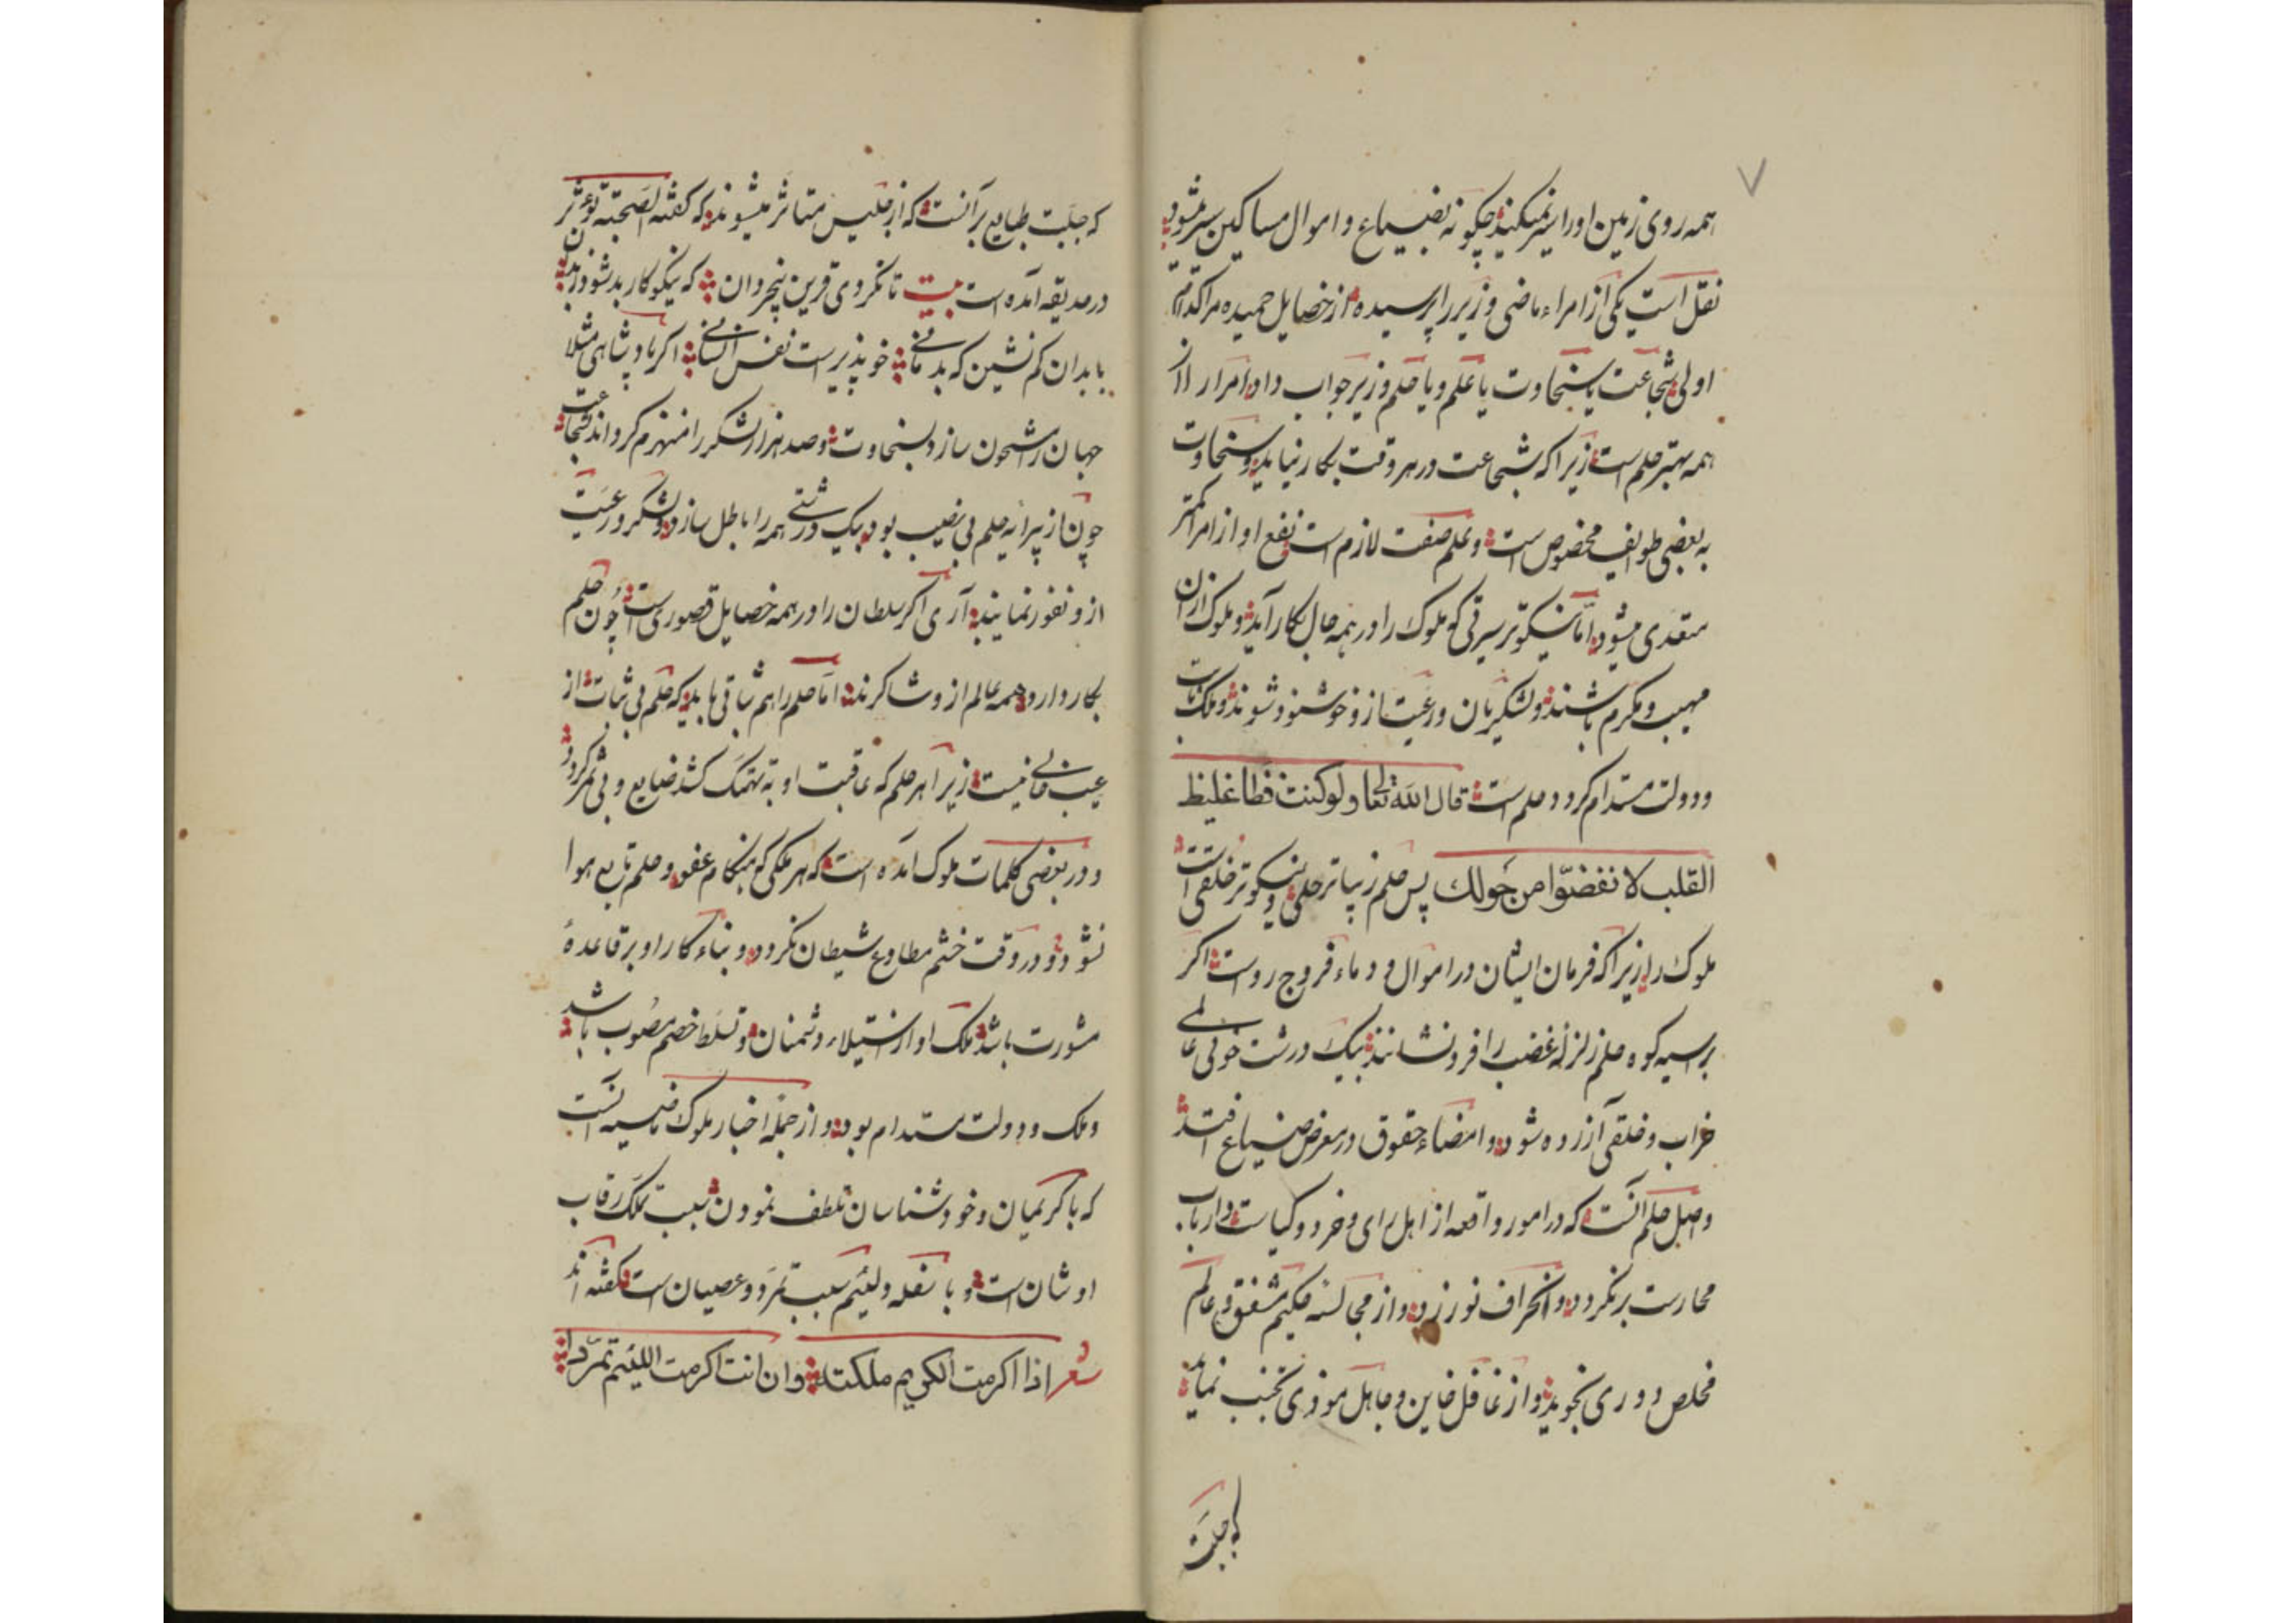 ۷
همه روی زمین او را سیر نمیکند چکونه بضیاع و اموال مساکین سیر شود
نقل است یکی از امراء ماضی وزیر را پرسیده از خصایل حمیده مر اکدام
اولی شجاعت یا سخاوت یا علم و یا حلم وزیر جواب داد امرا را از
همه بهتر حلم است زیرا که شجاعت در هر وقت بکار نیاید و سخاوت
به بعضی طوایف مخصوص است و علم صفت لازم است نفع او از امرا کمتر
متعدی میشود اما نیکوتر سیرتی که ملوک را در همه حال بکار آید و ملوک ازان
مهیب و مکرم باشند و لشکریان و رعیت ازو خوشنود شوند و ملک ثابت
و دولت مستدام کردد حلم است قال الله تعالی ولو کنت فظا غلیظ
القلب لا نفضّوا من حولك پس حلم زیباتر حلی و نیکوتر خلقی است
ملوک را زیرا که فرمان ایشان در اموال و دماء فروج رو است اکر
بر سیه کوه حلم زلزلهٔ غضب را فرو نشانند بیک درشت خوئی عالمی
خراب و خلقی آزرده شود و امضاء حقوق در معرض ضیاع افتد
و اصل حلم آنست که در امور واقعه از اهل رای و خرد و کیاست و ارباب
محارست بر نکردد و انحراف نورزد و از مجالسه حکیم مشفق و عالم
مخلص دوری نجوید و از غافل خاین و جاهل موذی تجنب نماید
که جبلت
که جبلت طبایع بر آنست که از جلیس متاثر میشوند که کفته الصحبته تؤثر
در حدیقه آمده است بیت تا نکردی قرین بیخردان که نیکوکار بد شود ز بدان
با بدان کم نشین که بد مانی خو پذیرست نفس انسانی اکر پادشاهی مثلا
جهان را مشحون سازد بسخاوت و صد هزار لشکر را منهزم کرداند بشجاعت
چون از پیرایه حلم بی نصیب بود بیک درشتی همه را باطل سازد و لشکر و رعیت
ازو نفور نمایند آری اکر سلطان را در همه خصایل قصوری است چون حلم
بکار دارد همه عالم ازو شاکرند اما حلم را هم ثباتی باید که حلم بی ثبات از
عیب خالی نیست زیرا هر حلم که عاقبت او به تهتک کشد ضایع و بی ثمر کردد
و در بعضی کلمات ملوک آمده است که هر ملکی که بهنکام عفو و حلم تابع هوا
نشود و در وقت خشم مطاوع شیطان نکردد و بناء کار او بر قاعدهٔ
مشورت باشد ملک او از استیلاء دشمنان و تسلط خصم مصوب باشد
و ملک و دولت مستدام بود و از جملهٔ اخبار ملوک ماضیه آنست
که با کریمان و خود شناسان تلطف نمودن سبب تملک رقاب
اوشان است و با سفله و لئیم سبب تمرد و عصیان است کفته اند
شعر اذا اکرمت الکریم ملکته وان انت اکرمت اللئیم تمرّدا